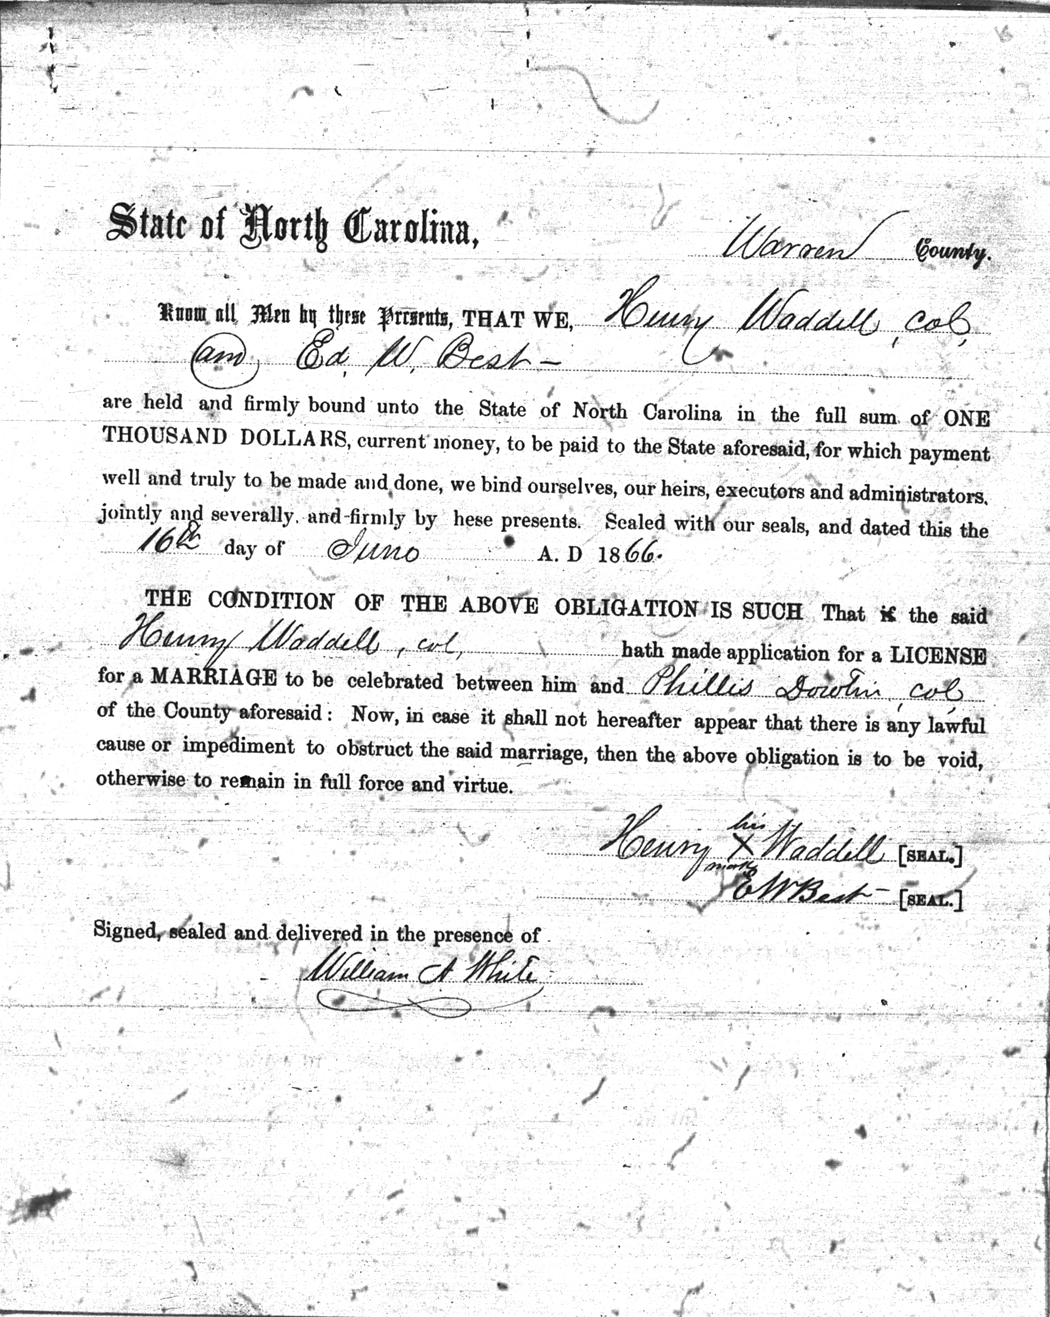 State of North Carolina,
Warren County.
Know all Men by these Presents, THAT WE, Henry Waddell, col,
and Ed. W. Best –
are held and firmly bound unto the State of North Carolina in the full sum of ONE
THOUSAND DOLLARS, current money, to be paid to the State aforesaid, for which payment
well and truly to be made and done, we bind ourselves, our heirs, executors and administrators,
jointly and severally, and firmly by hese presents. Sealed with our seals, and dated this the
16th day of June A. D 1866.
THE CONDITION OF THE ABOVE OBLIGATION IS SUCH That if the said
Henry Waddell, col, hath made application for a LICENSE
for a MARRIAGE to be celebrated between him and Phillis Dowtin, col,
of the County aforesaid: Now, in case it shall not hereafter appear that there is any lawful
cause or impediment to obstruct the said marriage, then the above obligation is to be void,
otherwise to remain in full force and virtue.
his
Henry X Waddell [SEAL.]
mark
E W Best – [SEAL.]
Signed, sealed and delivered in the presence of
William A White